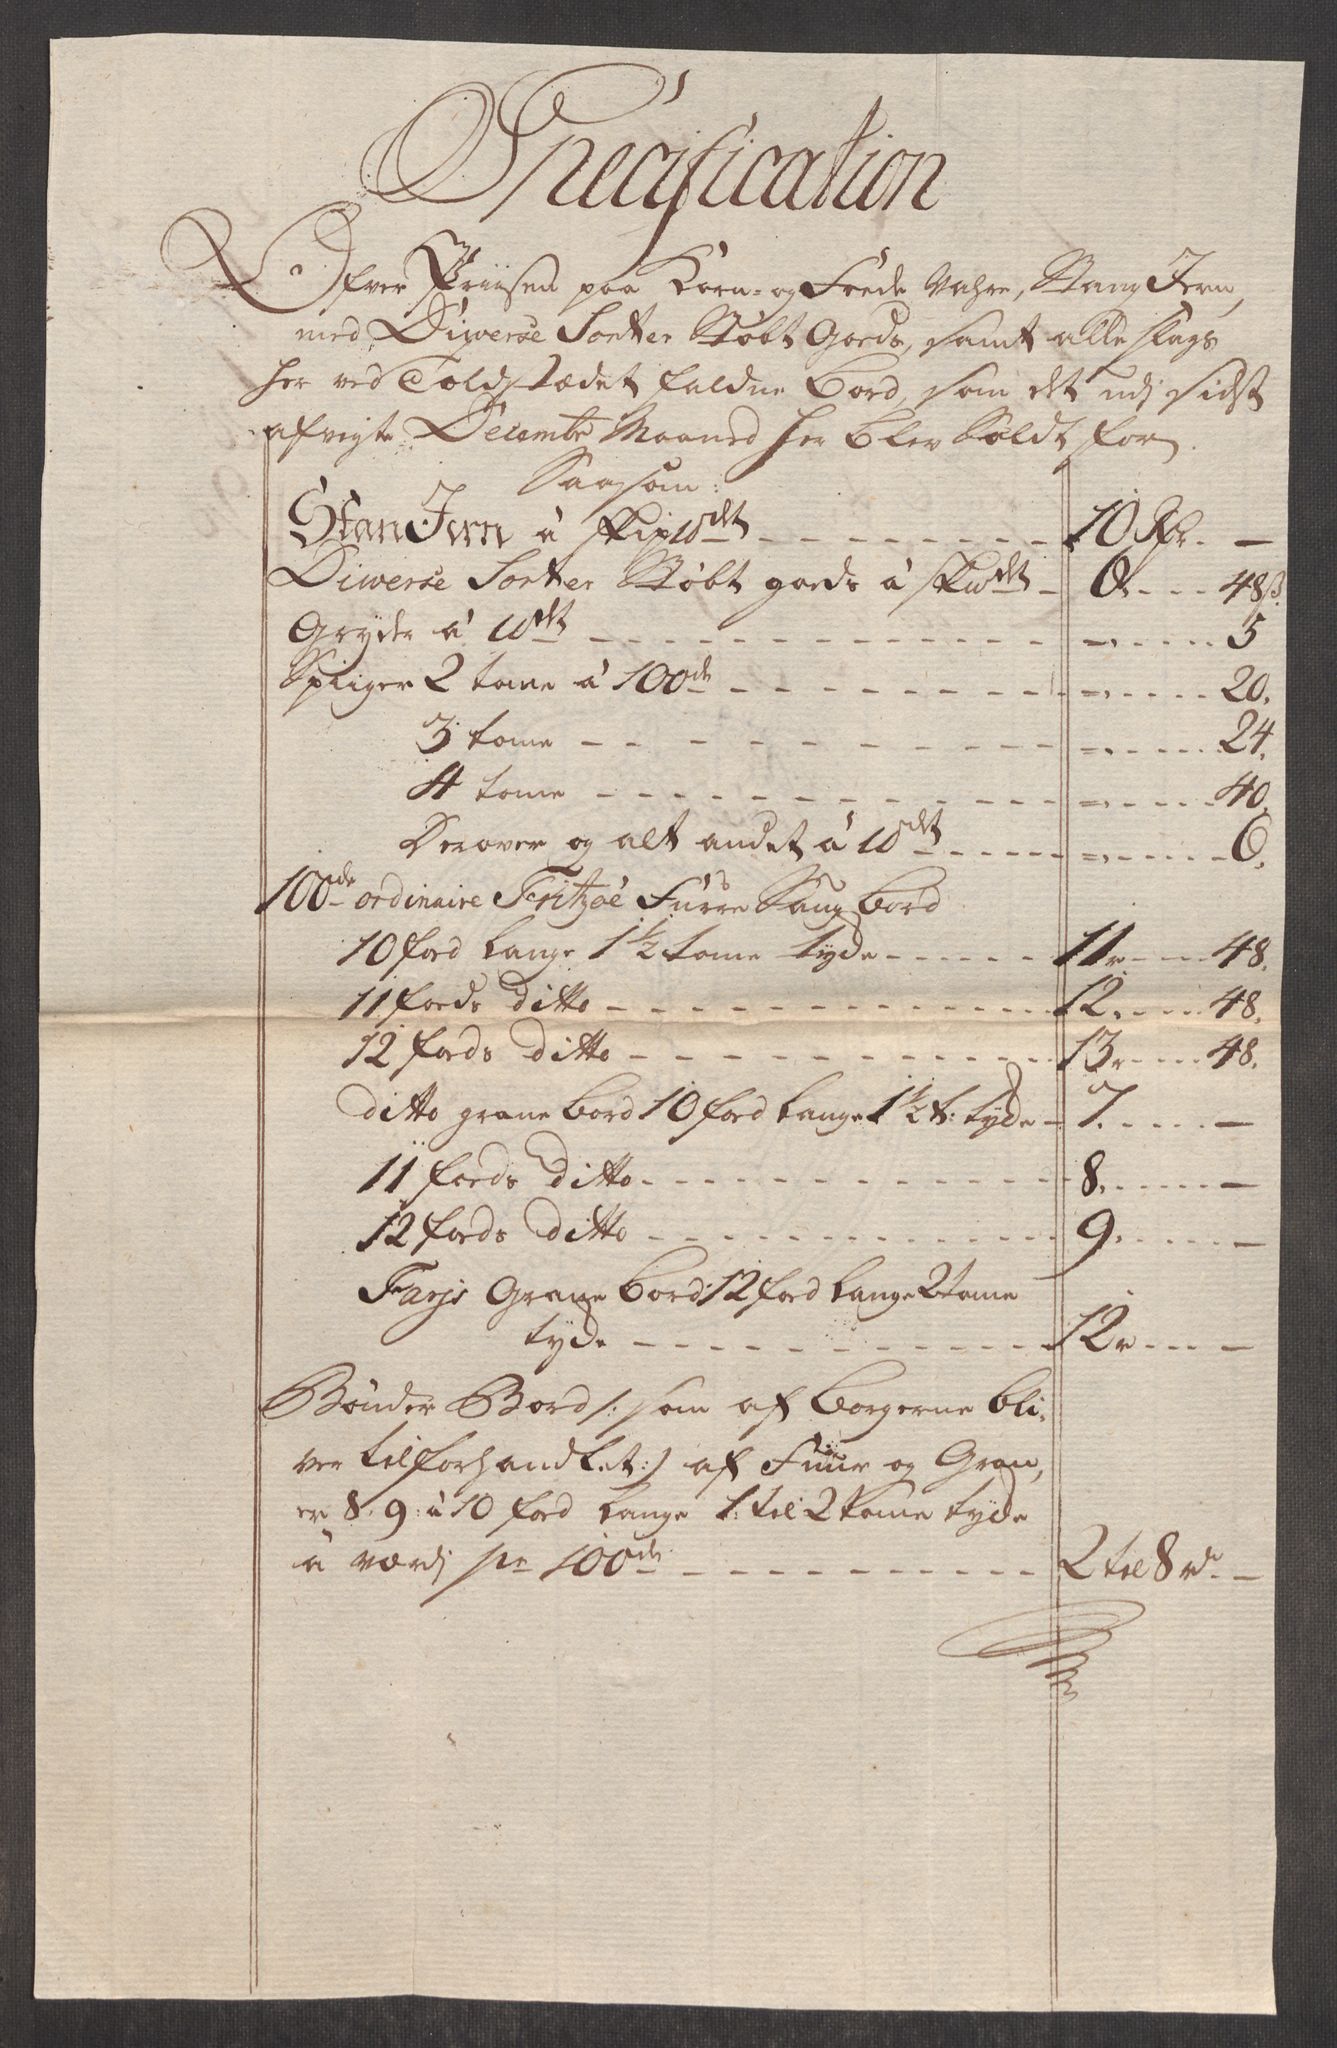 Specification
Ofver Priisen paa Korn- og Fæede Vahre, Stang Jern,
med Diverse Sorter Støbt Gods, samt alle slags
her ved Toldstædet faldne Bord, som det udj sidst
afvigte Decembr Maaned her blev Soldt for.
Saasom:
Stan Jern á skip℔det 10 Rdr. —
Diverse Sorter Støbt gods á sk℔det 6. 48 s.
Gryder á ℔det 5
Spiiger 2 tome á 100de 20.
3 tome 24.
4 tome 40.
Derover og alt andet á ℔det 6.
100de ordinaire Fritzøe Furre Saug bord
10 fod lange 1½ tome tyde 11 r 48.
11 fods ditto 12. 48.
12 fods ditto 13 r 48.
ditto grane bord 10 fod lange 1½ t: tyde 7. —
11 fods ditto 8. —
12 fods ditto 9. —
Farjs Grane bord 12 fod lange 2 tome
tyde 12 r —
Bønder Bord /: som af borgerne bli-
ver tilforhandlet :/ af Fuur og Gran,
er 8. 9: á 10 fod lange 1: til 2 tome tyde
á værdj pr 100de 2 til 8 rd. —